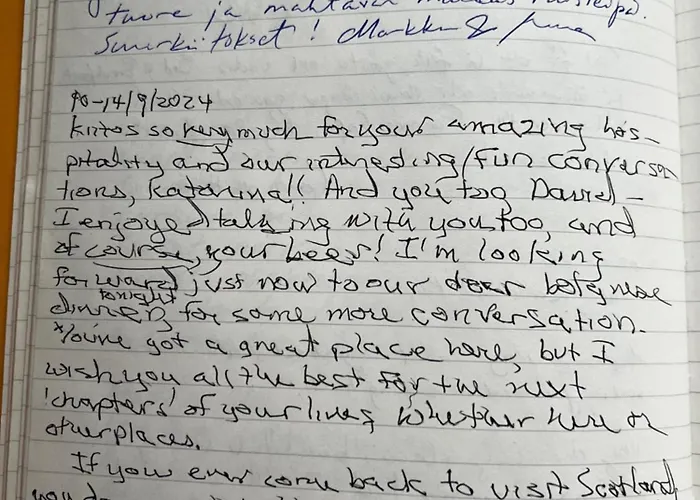 ja mahtava
Suurkiitokset! Markku &
10-14/9/2024
kiitos so very much for your amazing hos-
pitality and our interesting/fun conversa
tions, Katariina!! And you too David -
I enjoyed talking with you too, and
of course, your beer! I'm looking
forward just now to our
dinner tonight, for some more conversation.
You've got a great place here, but I
wish you all the best for the next
'chapters' of your lives, whether here or
other places.
If you ever come back to visit Scotland,